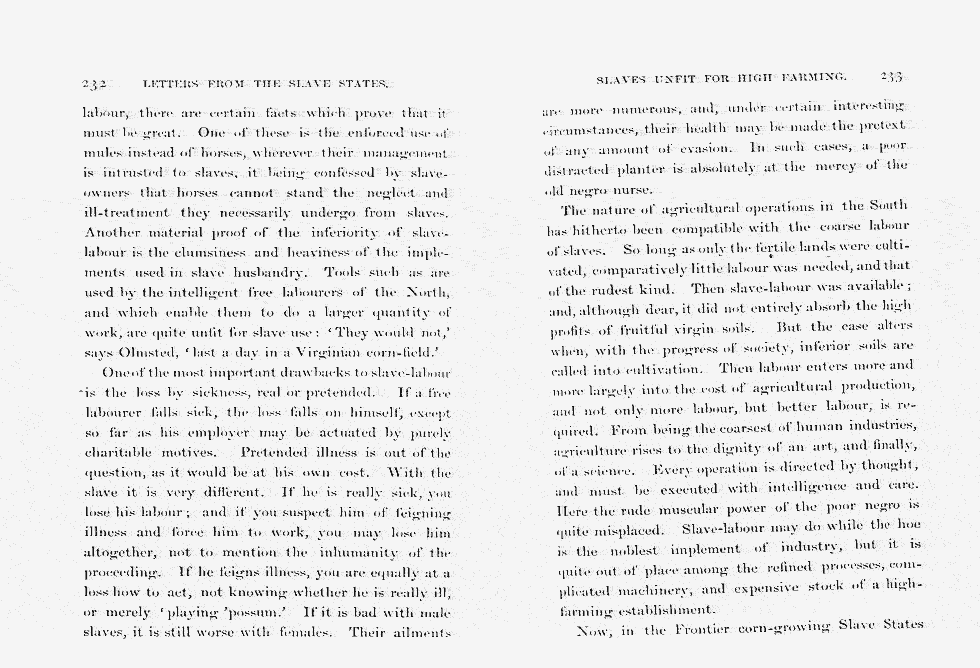 232 LETTERS FROM THE SLAVE STATES.
labour, there are certain facts which prove that it
must be great. One of these is the enforced use of
mules instead of horses, wherever their management
is intrusted to slaves, it being confessed by slave-
owners that horses cannot stand the neglect and
ill-treatment they necessarily undergo from slaves.
Another material proof of the inferiority of slave-
labour is the clumsiness and heaviness of the imple-
ments used in slave husbandry. Tools such as are
used by the intelligent free labourers of the North,
and which enable them to do a larger quantity of
work, are quite unfit for slave use: ‘They would not,’
says Olmsted, ‘last a day in a Virginian corn-field.’
One of the most important drawbacks to slave-labour
is the loss by sickness, real or pretended. If a free
labourer falls sick, the loss falls on himself, except
so far as his employer may be actuated by purely
charitable motives. Pretended illness is out of the
question, as it would be at his own cost. With the
slave it is very different. If he is really sick, you
lose his labour; and if you suspect him of feigning
illness and force him to work, you may lose him
altogether, not to mention the inhumanity of the
proceeding. If he feigns illness, you are equally at a
loss how to act, not knowing whether he is really ill,
or merely ‘playing ’possum.’ If it is bad with male
slaves, it is still worse with females. Their ailments
SLAVES UNFIT FOR HIGH FARMING. 233
are more numerous, and, under certain interesting
circumstances, their health may be made the pretext
of any amount of evasion. In such cases, a poor
distracted planter is absolutely at the mercy of the
old negro nurse.
The nature of agricultural operations in the South
has hitherto been compatible with the coarse labour
of slaves. So long as only the fertile lands were culti-
vated, comparatively little labour was needed, and that
of the rudest kind. Then slave-labour was available;
and, although dear, it did not entirely absorb the high
profits of fruitful virgin soils. But the case alters
when, with the progress of society, inferior soils are
called into cultivation. Then labour enters more and
more largely into the cost of agricultural production,
and not only more labour, but better labour, is re-
quired. From being the coarsest of human industries,
agriculture rises to the dignity of an art, and finally,
of a science. Every operation is directed by thought,
and must be executed with intelligence and care.
Here the rude muscular power of the poor negro is
quite misplaced. Slave-labour may do while the hoe
is the noblest implement of industry, but it is
quite out of place among the refined processes, com-
plicated machinery, and expensive stock of a high-
farming establishment.
Now, in the Frontier corn-growing Slave States